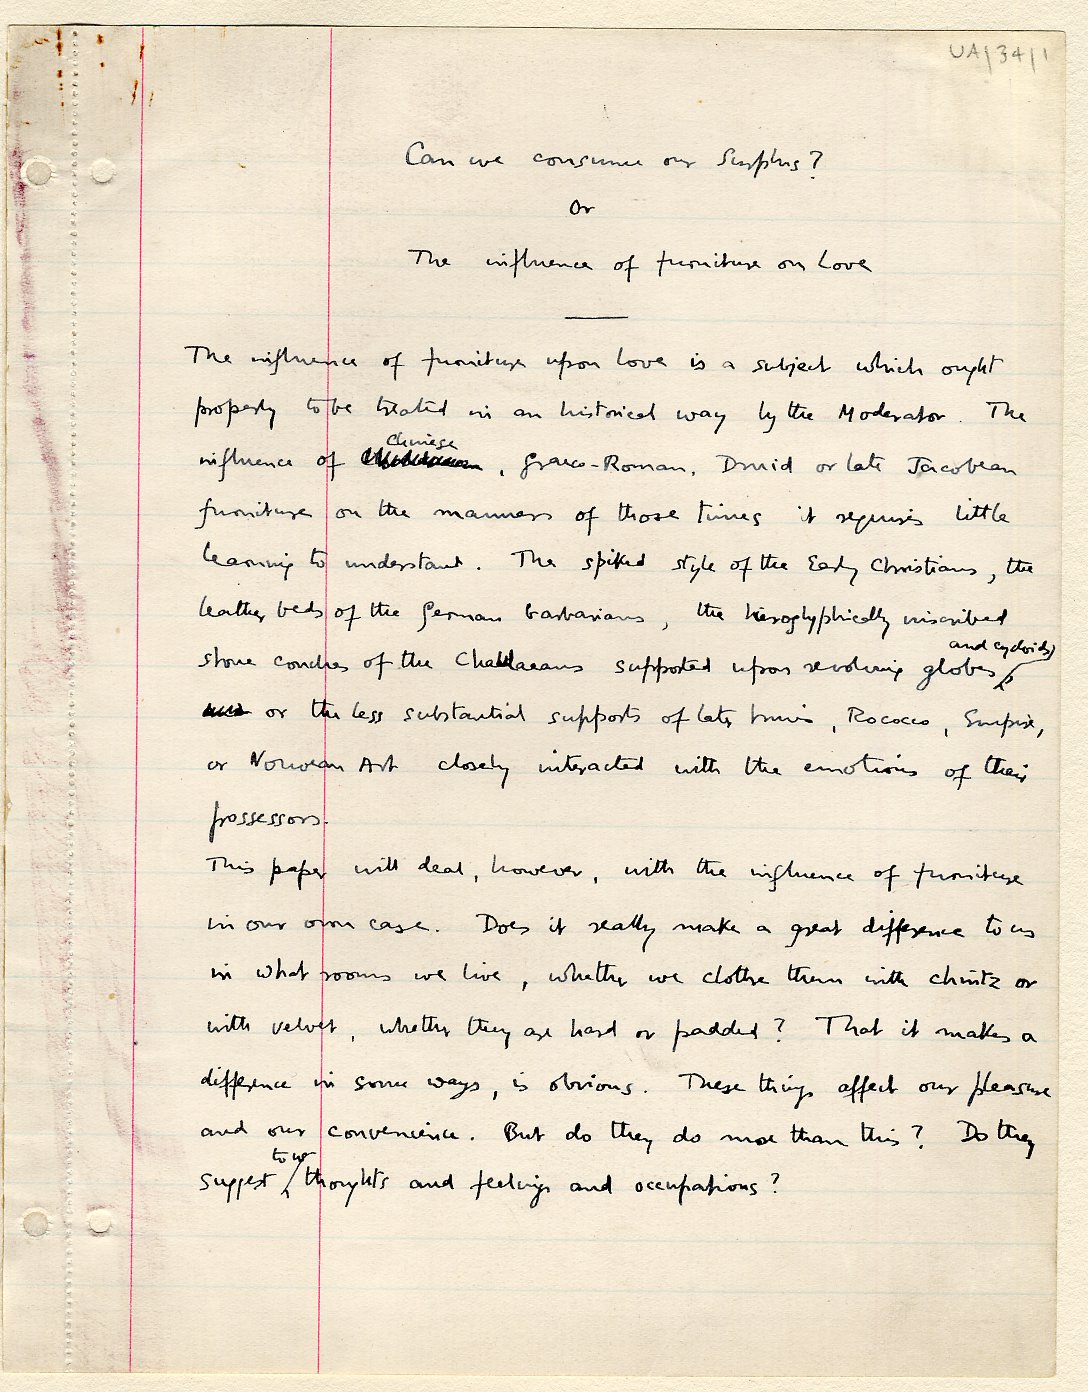 UA/34/1
Can we consume our Surplus?
Or
The influence of furniture on Love
The influence of furniture upon love is a subject which ought
properly to be treated in an historical way by the Moderator. The
Chinese
influence of , Graeco-Roman, Druid or late Jacobean
furniture on the manners of those times it requires little
learning to understand. The spiked style of the Early Christians, the
leather beds of the German barbarians, the hieroglyphically inscribed
and cycloids
stone couches of the Chaldaeans supported upon revolving globes
and or the less substantial supports of later times, Rococco, Empire,
or Nouveau Art closely interacted with the emotions of their
possessors.
This paper will deal, however, with the influence of furniture
in our own case. Does it really make a great difference to us
in what rooms we live, whether we clothe them with chintz or
with velvet, whether they are hard or padded? That it makes a
difference in some ways, is obvious. These things affect our pleasure
and our convenience. But do they do more than this? Do they
to us
suggest thoughts and feelings and occupations?